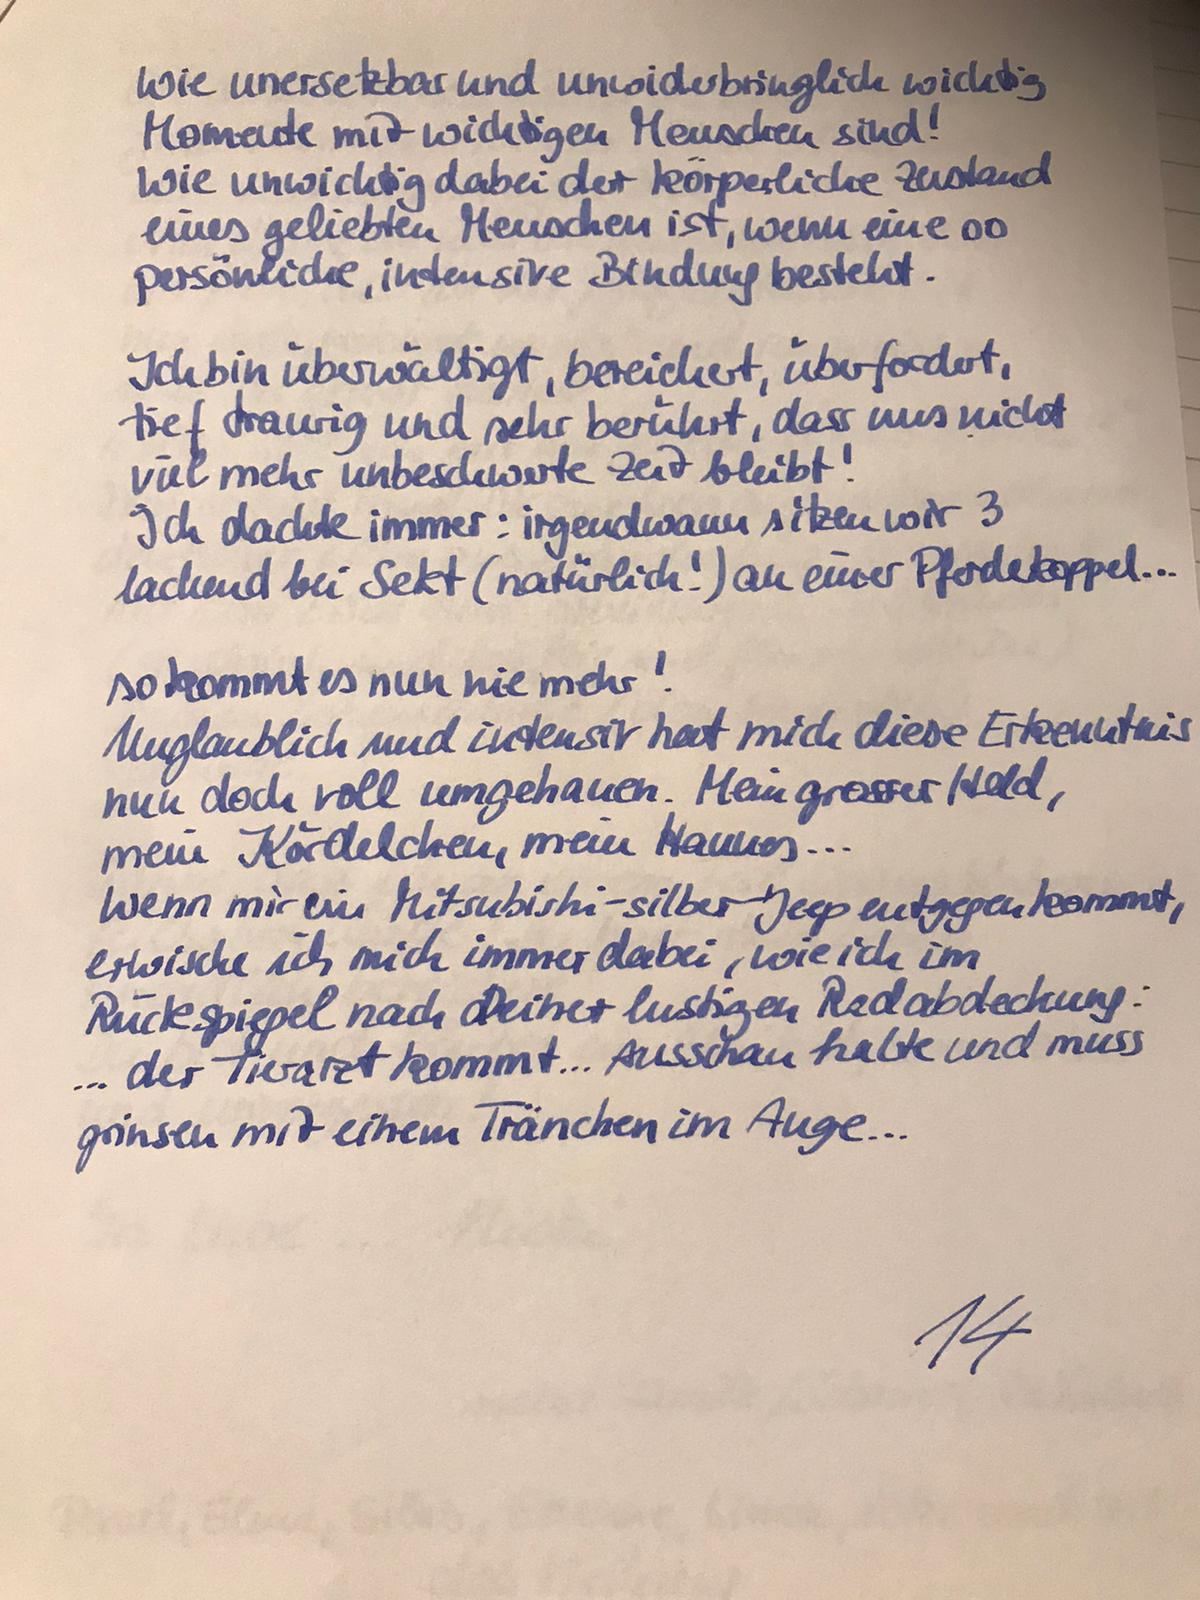 Wie unersetzbar und unwiderbringlich wichtig
Momente mit wichtigen Menschen sind!
Wie unwichtig dabei der körperliche Zustand
eines geliebten Menschen ist, wenn eine so
persönliche, intensive Bindung besteht.
Ich bin überwältigt, bereichert, überfordert,
tief traurig und sehr berührt, dass uns nicht
viel mehr unbeschwerte Zeit bleibt!
Ich dachte immer: irgendwann sitzen wir 3
lachend bei Sekt (natürlich!) an einer Pferdekoppel...
so kommt es nun nie mehr!
Unglaublich und intensiv hat mich diese Erkenntnis
nun doch voll umgehauen. Mein grosser Held,
mein Kördelchen, mein Hannes...
Wenn mir ein Mitsubishi-silber-Jeep entgegenkommt,
erwische ich mich immer dabei, wie ich im
Rückspiegel nach Deiner lustigen Radabdeckung:
... der Tierarzt kommt... Ausschau halte und muss
grinsen mit einem Tränchen im Auge...
14